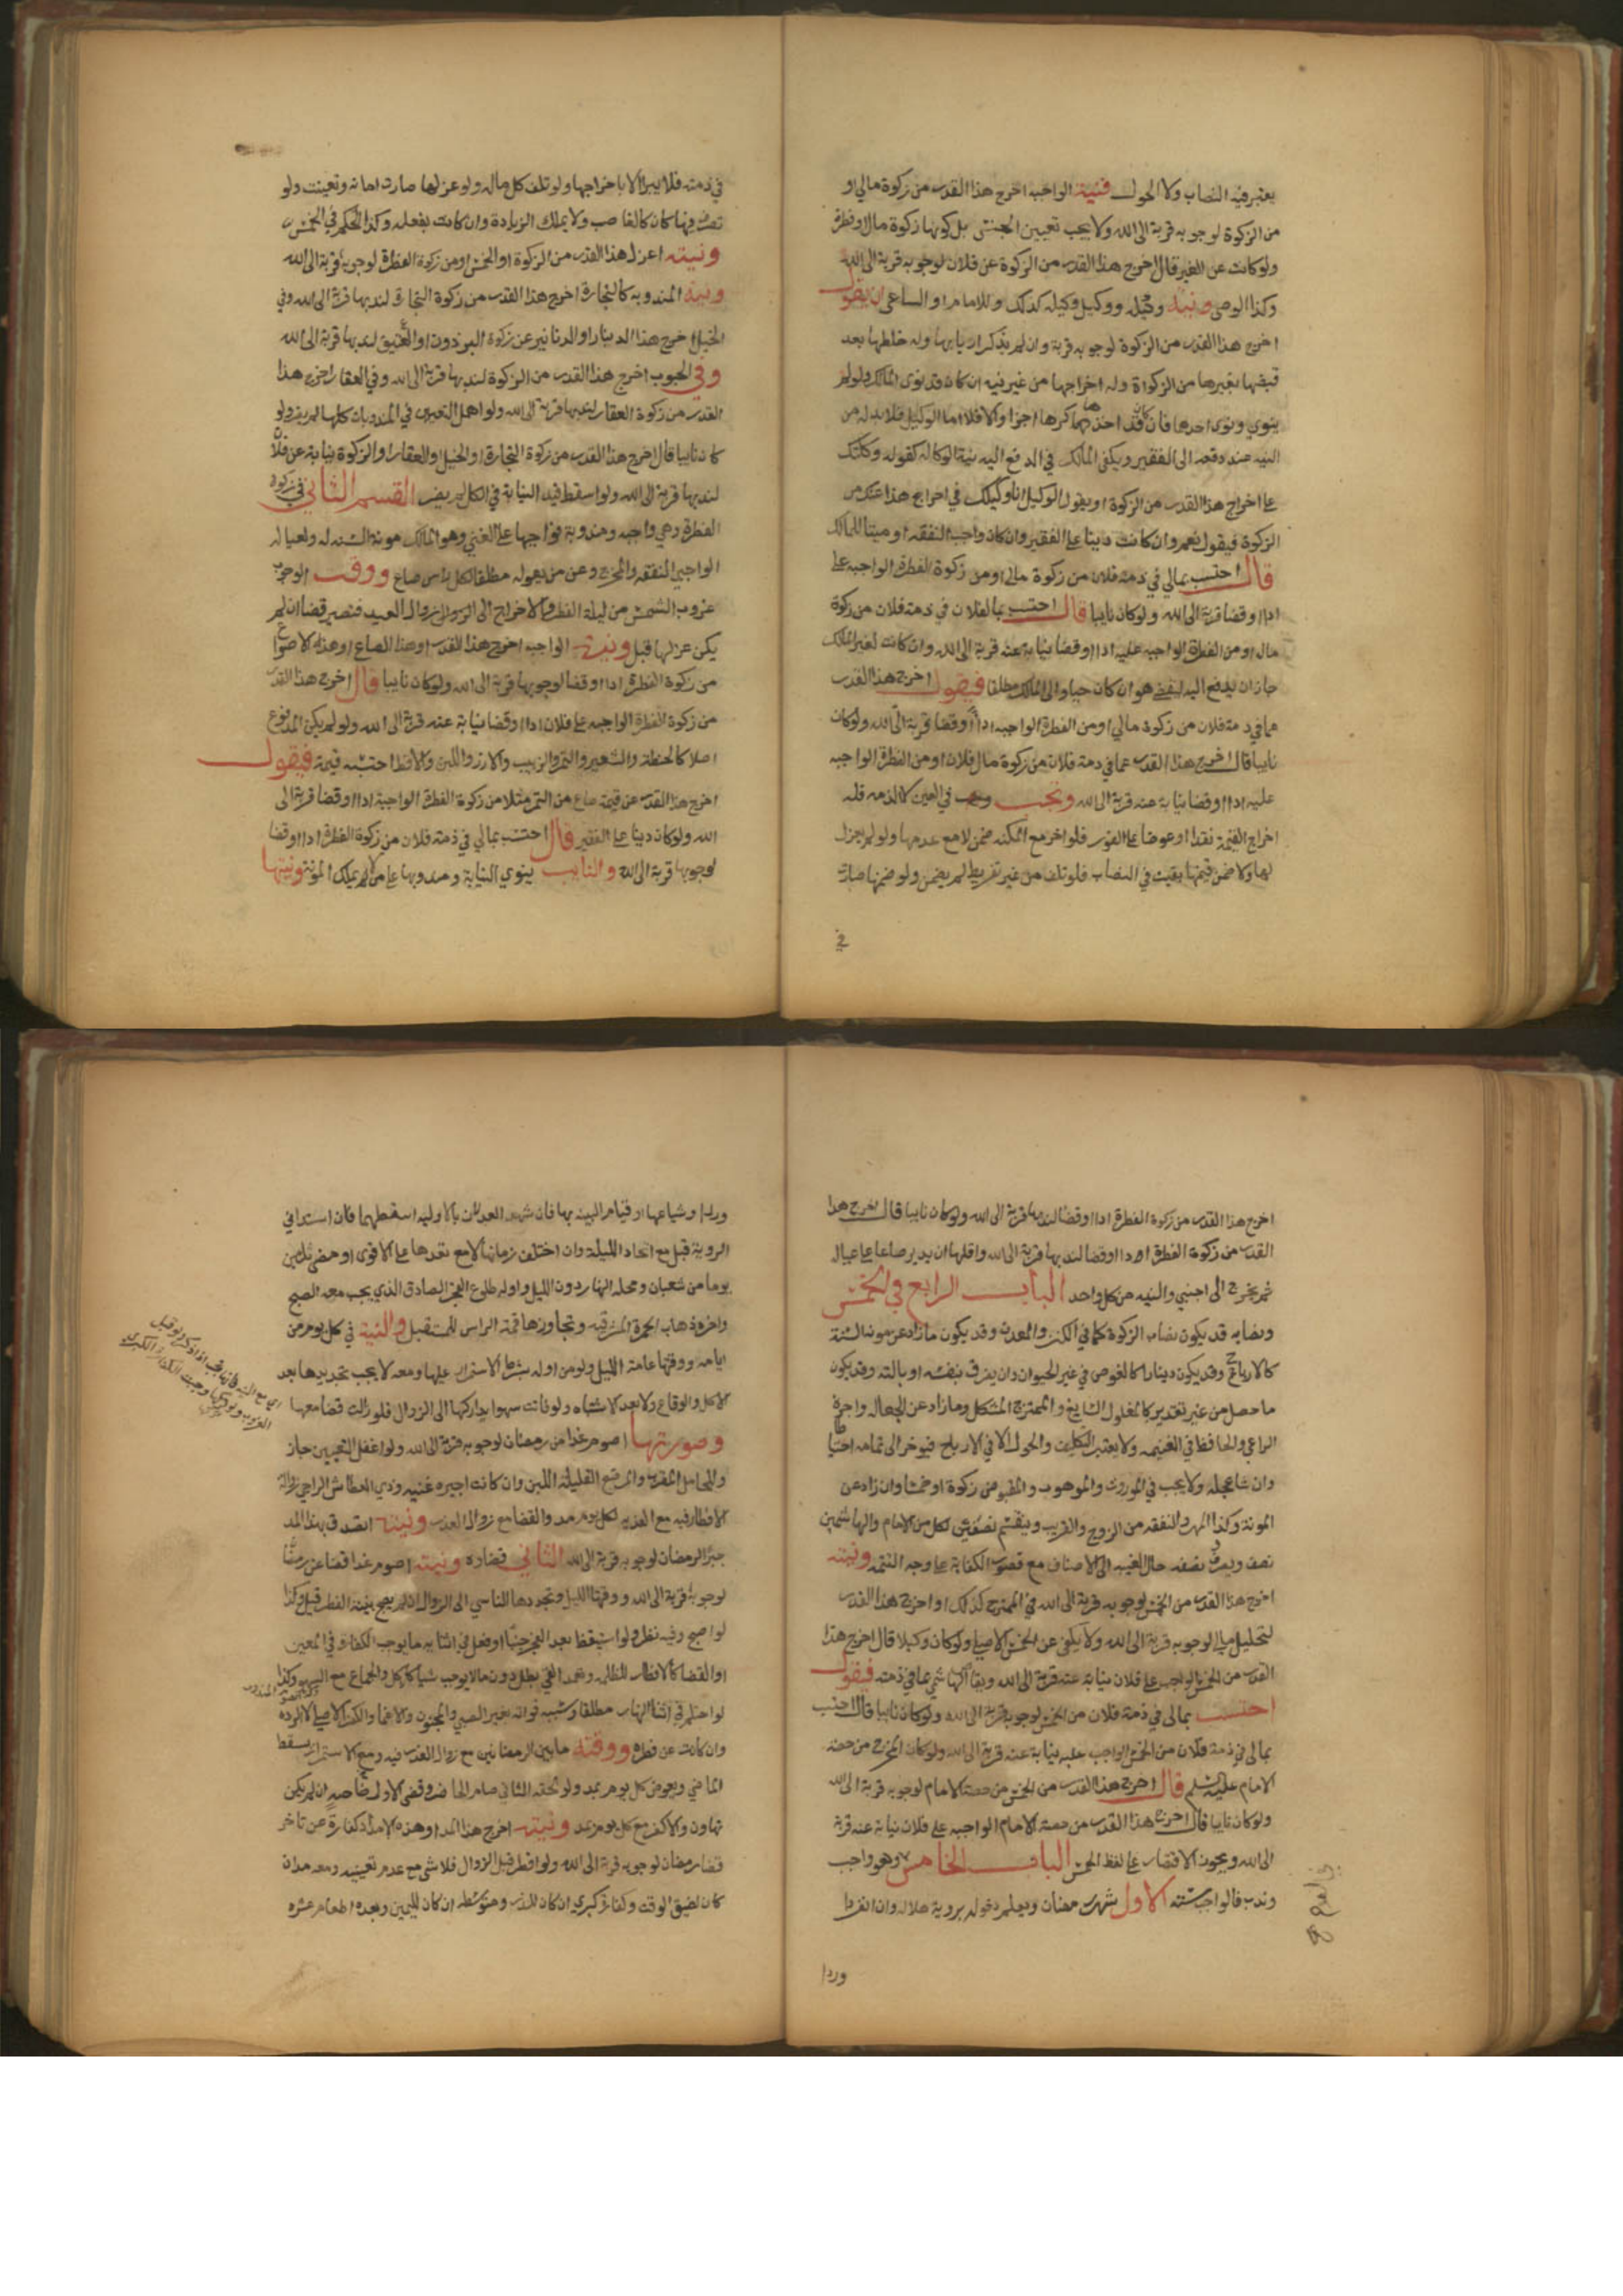 يعتبر فيه النصاب ولا الحول فنية الواجبه اخرج هذا القدر من زكوة مالي او
من الزكوة لوجوبه قربة الى الله ولا يجب تعيين الجنس بل كونها زكوة مال او فطرة
ولو كانت عن الغير قال اخرج هذا القدر من الزكوة عن فلان لوجوبه قربة الى الله
وكذا الوصي ونية وكيله ووكيل وكيله كذلك وللامام او الساعي ان يقول
اخرج هذا القدر من الزكوة لوجوبه قربة وان لم يذكر اربابها وله خلطها بعد
قبضها بغيرها من الزكوات وله اخراجها من غير نيه ان كان قد نوى المالك ولو لم
ينوي ونوى احدها فان كان قد اخذها كرها اجزا والا فلا اما الوكيل فلا بد له من
النيه عند دفعه الى الفقير ويكفي المالك في الدفع اليه نية الوكاله كقوله وكلتك
على اخراج هذا القدر من الزكوة او يقول الوكيل انا وكيلك في اخراج هذا عنك من
الزكوة فيقول نعم وان كانت دينا على الفقير وان كان واجب النفقه او ميتا للمالك
قال احتسب بمالي في ذمة فلان من زكوة مالي او من زكوة الفطرة الواجبه علي
اداا وقضا قربة الى الله ولو كان نايبا قال احتسب بما لفلان في ذمة فلان من زكوة
ماله او من الفطرة الواجبه عليه اداا وقضا نيابة عنه قربة الى الله وان كانت لغير المالك
جاز ان يدفع اليه ليقضي هو ان كان حيا والى المالك مطلقا فيقول اخرج هذا القدر
عما في ذمة فلان من زكوة مالي او من الفطرة الواجبه اداا وقضا قربة الى الله ولو كان
نايبا قال اخرج هذا القدر عما في ذمة فلان من زكوة مال فلان او من الفطرة الواجبه
عليه اداا وقضا نيابة عنه قربة الى الله وتجب في العين لا الذمه فله
اخراج القيمة نقدا او عوضا على الفور فلو اخر مع المكنه ضمن لا مع عدمها ولو لم يعزل
لها ولا ضمن قيمتها بقيت في النصاب فلو تلف من غير تفريط لم يضمن ولو ضمنها صارت
في
في ذمته فلا يبرا الا باخراجها ولو تلف كل ماله ولو عزلها صارت امانة وتعينت ولو
تصرف فيها كان كالغاصب ولا يملك الزيادة وان كانت بفعله وكذا الحكم في الخمس
ونيته اعزل هذا القدر من الزكوة او الخمس او من زكوة الفطرة لوجوبه قربة الى الله
ونية المندوبه كالتجارة اخرج هذا القدر من زكوة التجارة لندبها قربة الى الله وفي
الخيل اخرج هذا الدينار او الدنانير عن زكوة البرذون او العتيق لندبها قربة الى الله
وفي الحبوب اخرج هذا القدر من الزكوة لندبها قربة الى الله وفي العقار اخرج هذا
القدر من زكوة العقار لندبها قربة الى الله ولو اهمل التعيين في المندوبات كلها لم يضر ولو
كان نايبا قال اخرج هذا القدر من زكوة التجارة او الخيل او العقار او الزكوة نيابة عن فلان
لندبها قربة الى الله ولو اسقط قيد النيابة في الكل لم يضر القسم الثاني في زكوة
الفطرة وهي واجبه ومندوبة فواجبها على الغني وهو المالك مونة السنه له ولعياله
الواجبي النفقه والمخرج وعن من يعوله مطلقا لكل راس صاع ووقت الوجوب
غروب الشمس من ليلة الفطر والاخراج الى الزوال العيد فتصير قضا ان لم
يكن عزلها قبل ونية الواجبه اخرج هذا القدر او هذا الصاع او هذه الاصواع
من زكوة الفطرة اداا وقضا لوجوبها قربة الى الله ولو كان نايبا قال اخرج هذا القدر
من زكوة الفطرة الواجبه على فلان اداا وقضا نيابة عنه قربة الى الله ولو لم يكن المدفوع
اصلا كالحنطة والشعير والتمر والزبيب والارز واللبن والاقط احتسبه قيمة فيقول
اخرج هذا القدر عن قيمة صاع من التمر مثلا من زكوة الفطرة الواجبة اداا وقضا قربة الى
الله ولو كان دينا على الفقير قال احتسب بمالي في ذمة فلان من زكوة الفطرة اداا وقضا
لوجوبها قربة الى الله والنايب ينوي النيابة ومندوبها على من لم يملك المونة ونيتها
اخرج هذا القدر من زكوة الفطرة اداا وقضا لندبها قربة الى الله ولو كان نايبا قال اخرج هذا
القدر من زكوة الفطرة اداا وقضا لندبها قربة الى الله واقلها ان يدير صاعا على عياله
ثم يخرج الى اجنبي والنيه من كل واحد الباب الرابع في الخمس
ونصابه قد يكون نصاب الزكوة كما في الكنز والمعدن وقد يكون ما زاد عن مونه السنة
كالارباح وقد يكون دينارا كالغوص في غير الحيوان وان يفرق بنفسه او بالته وقد يكون
ما حصل من غير تقدير كالمغلول السايغ والممتزج المشكل وما زاد عن الجعاله واجرة
الراعي والحافظ في الغنيمه ولا يعتبر التكليف والحول الا في الارباح فيوخر الى تمامه احتياطا
وان شا عجله ولا يجب في الموروث والموهوب والمقبوض زكوة او خمسا وان زاد عن
المونة وكذا المهر والنفقه من الزوج والقريب ويقسم نصفين لكل من الامام والهاشميين
نصف ويصرف نصفه حال الغيبه الى الاصناف مع قصور الكفاية على وجه التتمه ونيته
اخرج هذا القدر من الخمس لوجوبه قربة الى الله في الممتزج كذلك او اخرج هذا القدر
لتحليل مالي لوجوبه قربة الى الله ولا يكفي عن الخمس الاصلي ولو كان وكيلا قال اخرج هذا
القدر من الخمس الواجب على فلان نيابة عنه قربة الى الله الهاشمي بما في ذمته فيقول
احتسب بمالي في ذمة فلان من الخمس لوجوبه قربة الى الله ولو كان نايبا قال احتسب
بمالي في ذمة فلان من الخمس الواجب عليه نيابة عنه قربة الى الله ولو كان المخرج من حصة
الامام عليه السلم قال اخرج هذا القدر من الخمس من حصة الامام لوجوبه قربة الى الله
ولو كان نايبا قال اخرج هذا القدر من حصة الامام الواجبه على فلان نيابة عنه قربة
الى الله ويجوز الاقتصار على لفظ الخمس الباب الخامس وهو واجب
وندب فالواجب ستة الاول شهر رمضان ويعلم دخوله بروية هلاله وان انفردا
وردا
وردا وشياعها او قيام البينه بها فان شهد العدلان بالاوليه اسقطهما فان استدا في
الروية قبل مع اتحاد الليلة وان اختلف زمانها لا مع بعدها على الاقوى او مضى ثلثين
يوما من شعبان ومحله النهار دون الليل واوله طلوع الفجر الصادق الذي يجب معه الصبح
واخره ذهاب الحمرة المشرقيه وتجاوزها قمة الراس للمستقبل والنية في كل يوم من
ايامه ووقتها عامة الليل ولو من اوله بشرط الاستمرار عليها ومعه لا يجب تجديدها بعد
الاكل والوقاع ولا بعد الاشتباه ولو فاتت سهوا تداركها الى الزوال فلو زالت قضا معها
وصورتها اصوم غدا من رمضان لوجوبه قربة الى الله ولو اغفل التعيين جاز
وللحامل المقرب والمرضع القليلة اللبن وان كانت اجيره غنيه وذي العطاش الراجي زواله
الافطار فيه مع الفديه لكل يوم مد والقضا مع زوال العذر ونيته اتصدق بهذا المد
جبرا لرمضان لوجوبه قربة الى الله الثاني قضاوه ونيته اصوم غدا قضا عن رمضان
لوجوبه قربة الى الله ووقتها الليل وتجددها للناسي الى الزوال ان لم يصبح بنية الفطر قبل وكذا
لو اصبح وفيه نظر ولو استيقظ بعد الفجر جنبا او فعل في اثنايه ما يوجب الكفارة في المعين
او القضا كالافطار للظلمه وتعمد القي بطل دون ما لا يوجب شيا كالاكل والجماع مع السهو وكذا
لو احتلم في اثنا النهار مطلقا وسببه فواته بغير الصبي والجنون والاغما والكفر الاصلي لا الرده
وان كانت عن فطره ووقته ما بين الرمضانين مع زوال العذر فيه ومع الاستمرار يسقط
الماضي ويعوض كل يوم بمد ولو لحقه الثاني صام الحاضر وقضى الاول خاصه ان لم يكن
تهاون والا كفر مع كل يوم بمد ونيته اخرج هذا المد او هذه الامداد كفارة عن تاخر
قضا رمضان لوجوبه قربة الى الله ولو افطر قبل الزوال فلا شي مع عدم تعيينه ومعه مد ان
كان لضيق الوقت وكفارة كبرى ان كان للنذر ومتوسطه ان كان لليمين وبعده اطعام عشره